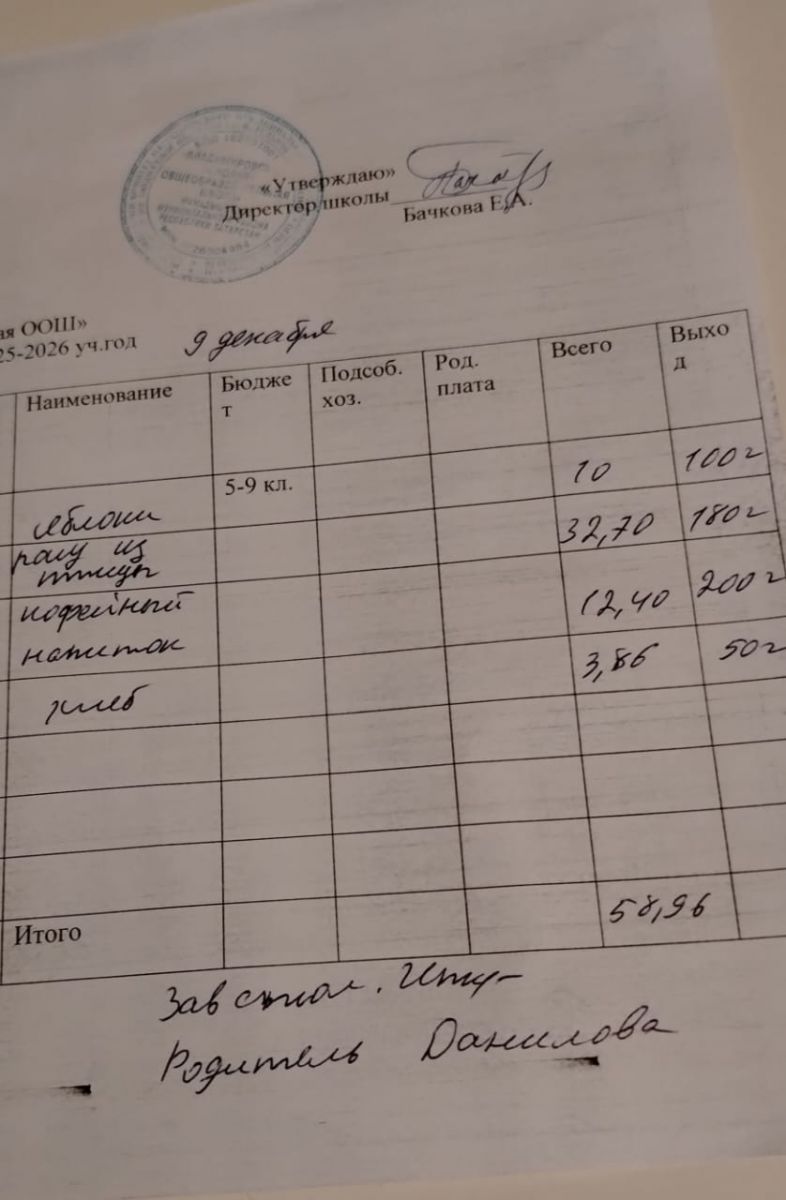 «Утверждаю»
Директор школы
Бачкова Е.А.
ая ООШ»
25-2026 уч.год 9 декабря
Наименование Бюдже
т Подсоб.
хоз. Род.
плата Всего Выхо
д
5-9 кл.
яблоки 10 100г
рагу из
птицы 32,70 180г
кофейный
напиток 12,40 200г
хлеб 3,86 50г
Итого 58,96
Зав стол.
Родитель Данилова